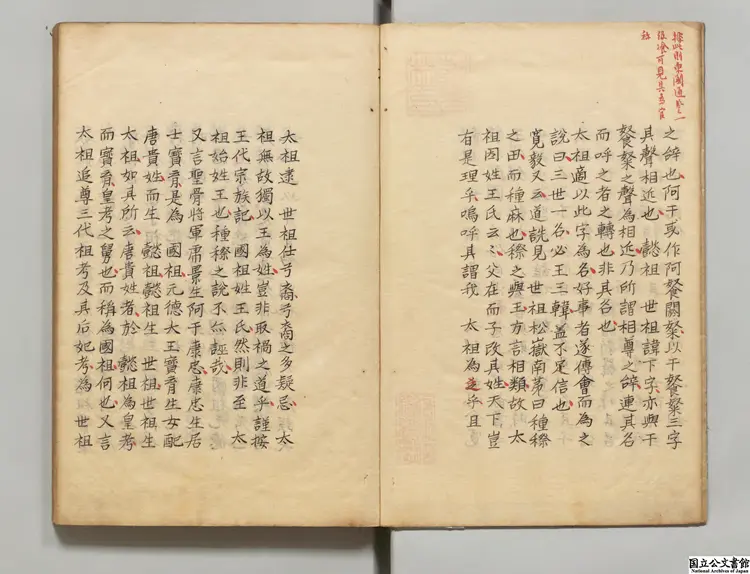 據此則東閣通鑒一
之辭也阿干或作阿餐閼粲以干餐粲三字
其聲相近也懿祖世祖諱下字亦與干
餐粲之聲為相近乃所謂相尊之辭連其名
而呼之者之轉也非其名也
太祖適以此字為名好事者遂傳會而為之
說曰三世一名必王三韓蓋不足信也
寛毅又云道詵見世祖松嶽南第曰種穄
之田而種麻也穄之與王方言相類故太
祖因姓王氏云々父在而子改其姓天下豈
有是理乎嗚呼其謂我太祖為之乎且
太祖逮世祖仕弓裔弓裔之多疑忌太
祖無故獨以王為姓豈非取禍之道乎謹按
王代宗族記國祖姓王氏然則非至太
祖始姓王也種穄之說不亦誣哉
又言聖骨將軍虎景生阿干康忠康忠生居
士寶育是為國祖元德大王寶育生女配
唐貴姓而生懿祖懿祖生世祖世祖生
太祖如其所云唐貴姓者於懿祖為皇考
而寶育皇考之舅也而稱為國祖何也又言
太祖追尊三代祖考及其后妃考為世祖
国立公文書館
National Archives of Japan